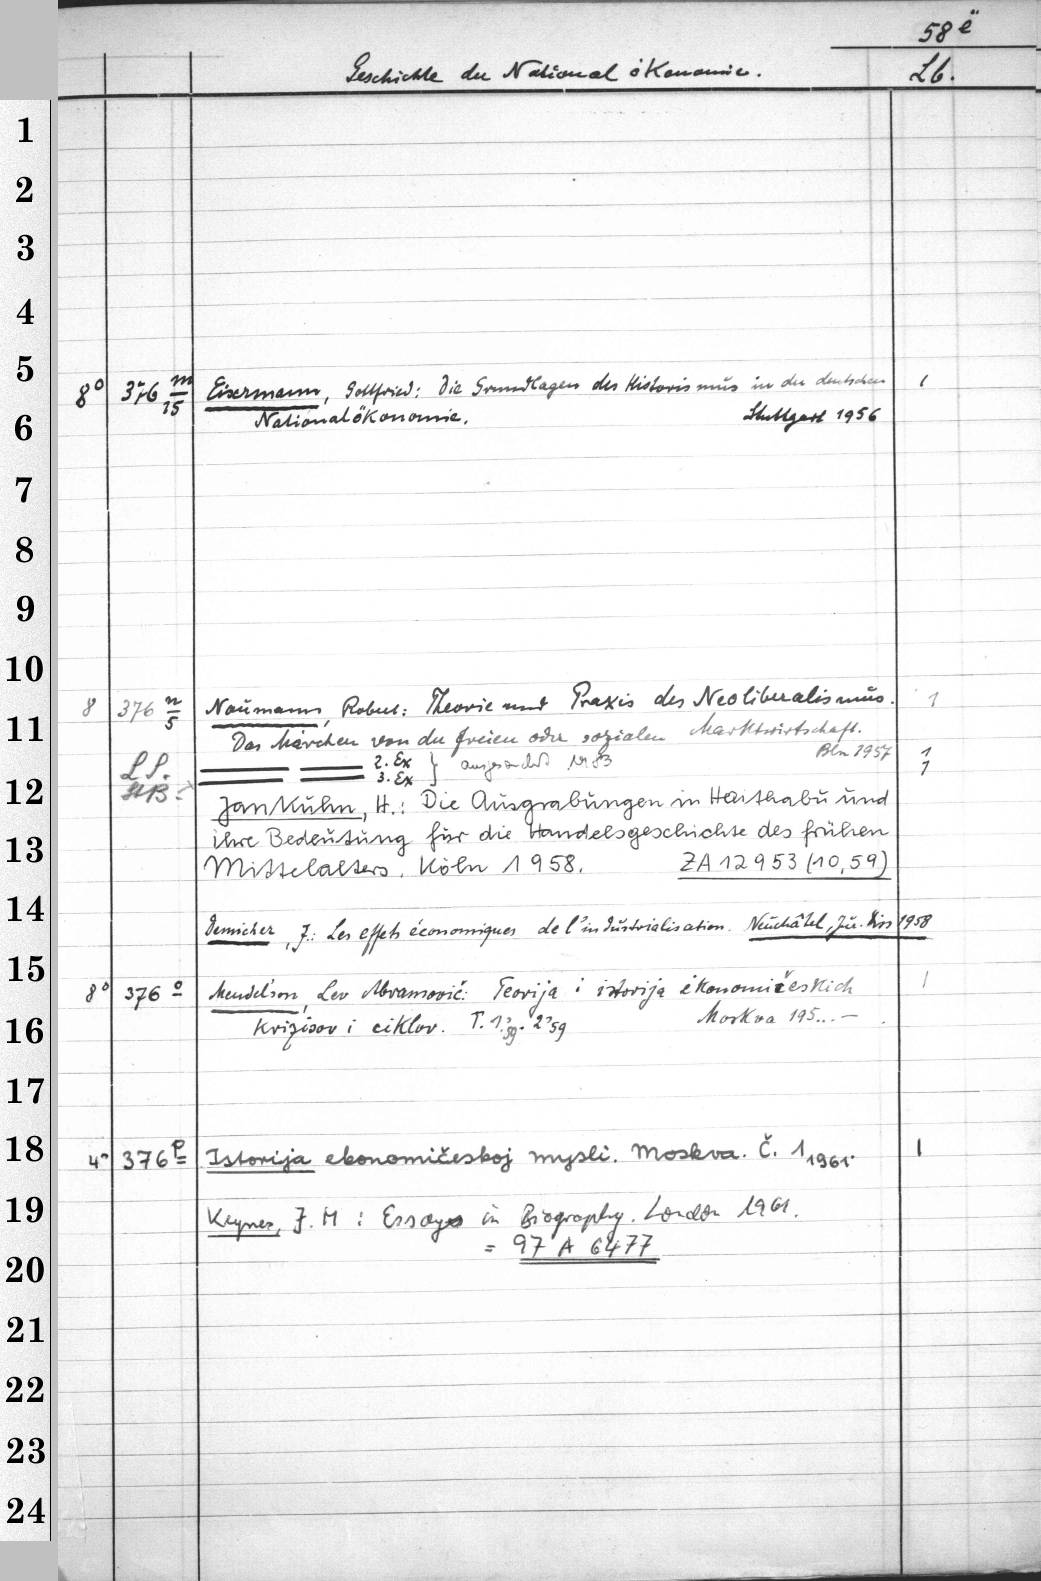 58 ë
Geschichte der Nationalökonomie. Lb.
1
2
3
4
5
8° 376 m/15 Eisermann, Gottfried: Die Grundlagen des Historismus in der deutschen 1
6 Nationalökonomie. Stuttgart 1956
7
8
9
10
8 376 n/5 Naumann, Robert: Theorie und Praxis des Neoliberalismus. 1
11 Das Märchen von der freien oder sozialen Marktwirtschaft.
Bln 1957
LS. 2. Ex } ausgesondert 1
HB 3. Ex 1
12 Jankuhn, H.: Die Ausgrabungen in Haithabu und
ihre Bedeutung für die Handelsgeschichte des frühen
13 Mittelalters. Köln 1958. ZA 12953 (10,59)
14 Demicher, J.: Les effets économiques de l'industrialisation. Neuchâtel, Jur. Diss 1958
15
8° 376 o Mendel'son, Lev Abramovič: Teorija i istorija ėkonomičeskich 1
16 krizisov i ciklov. T. 1.'59. 2'59 Moskva 195..-
17
18 4° 376 p Istorija ekonomičeskoj mysli. Moskva. Č. 1 1961. 1
19 Keynes, J. M: Essays in Biography. London 1961.
= 97 A 6477
20
21
22
23
24